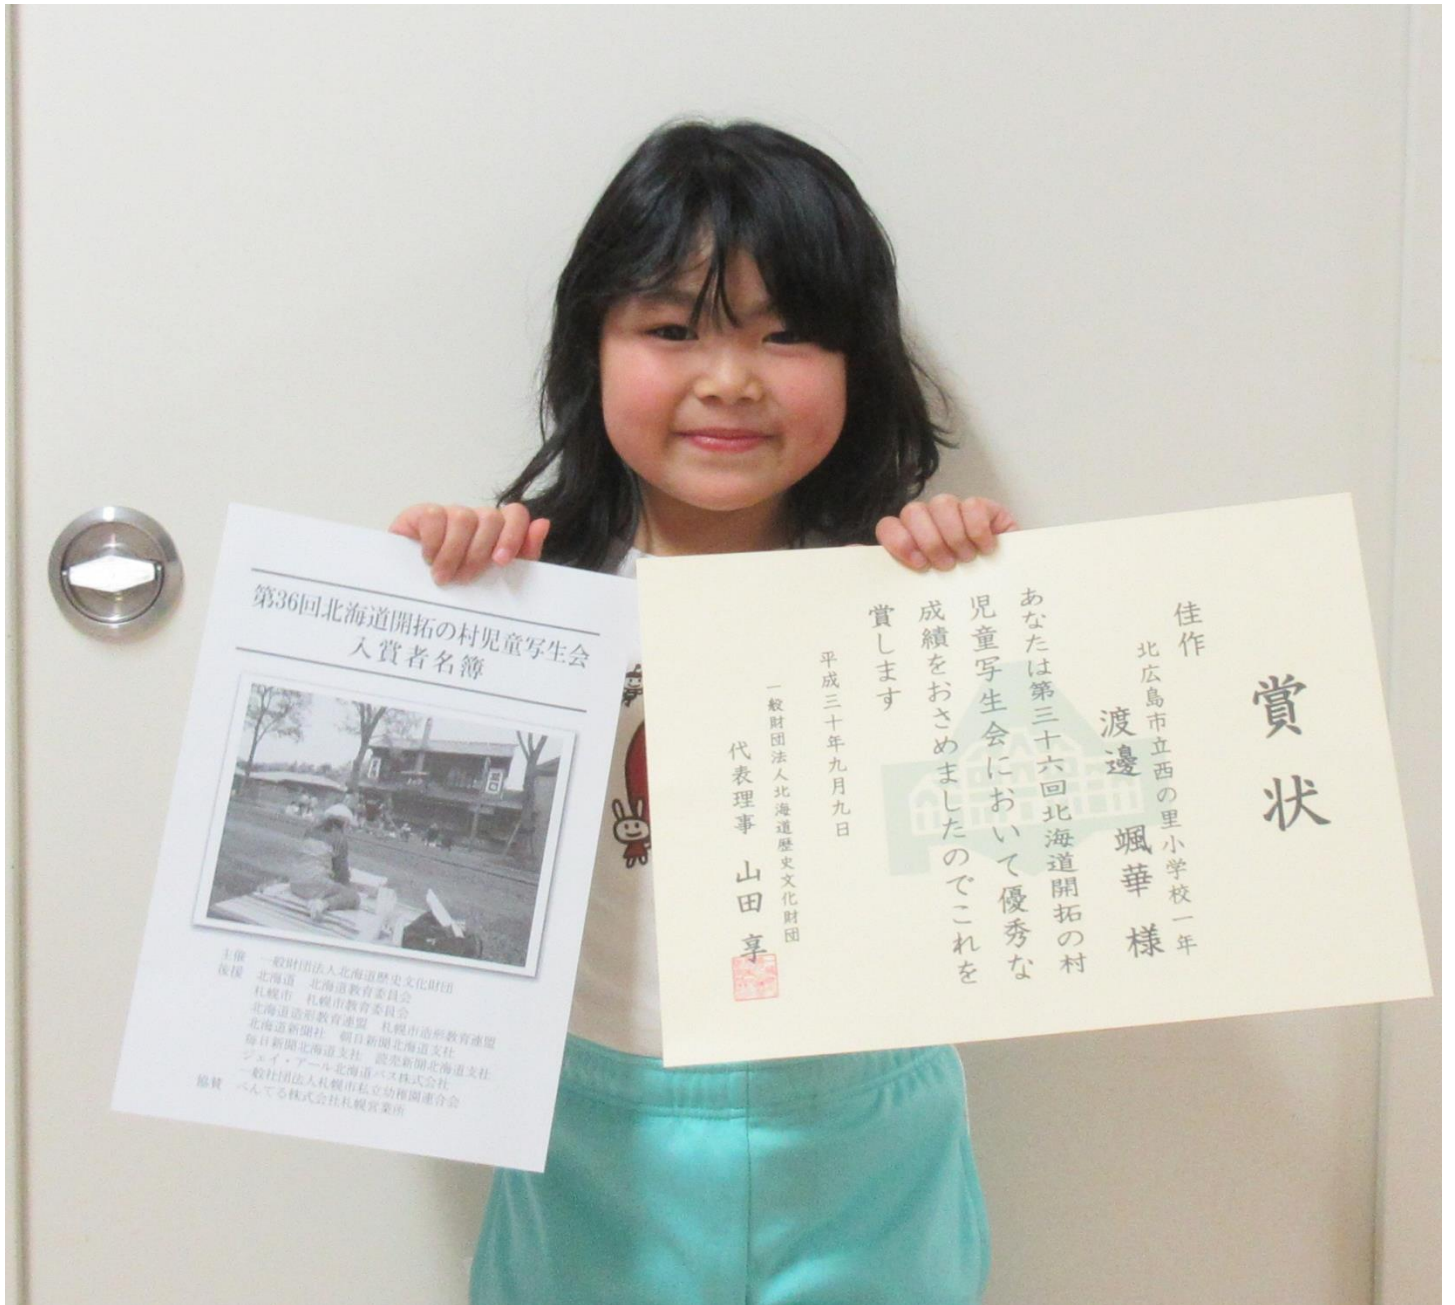 第36回北海道開拓の村児童写生会
入賞者名簿
主催 一般財団法人北海道歴史文化財団
後援 北海道 北海道教育委員会
札幌市 札幌市教育委員会
北海道造形教育連盟 札幌市造形教育連盟
北海道新聞社 朝日新聞北海道支社
毎日新聞北海道支社 読売新聞北海道支社
ジェイ・アール北海道バス株式会社
一般社団法人札幌市私立幼稚園連合会
協賛 ぺんてる株式会社札幌営業所
賞状
佳作
北広島市立西の里小学校一年
渡邊 颯華 様
あなたは第三十六回北海道開拓の村
児童写生会において優秀な
成績をおさめましたのでこれを
賞します
平成三十年九月九日
一般財団法人北海道歴史文化財団
代表理事 山田 享